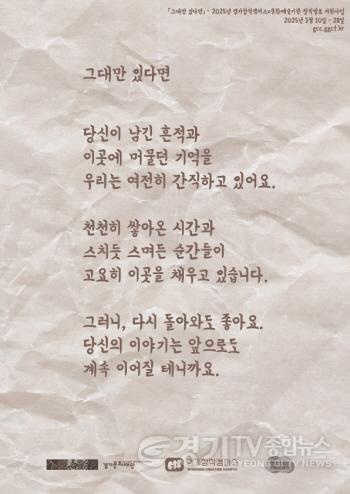 「그대만 있다면」 - 2025년 경기창작캠퍼스×문화예술기관 창작발표 지원사업
2025년 3월 10일 - 28일
gcc.ggcf.kr
그대만 있다면
당신이 남긴 흔적과
이곳에 머물던 기억을
우리는 여전히 간직하고 있어요.
천천히 쌓아온 시간과
스치듯 스며든 순간들이
고요히 이곳을 채우고 있습니다.
그러니, 다시 돌아와도 좋아요.
당신의 이야기는 앞으로도
계속 이어질 테니까요.
경기문화재단
경기창작캠퍼스
GYEONGGI CREATION CAMPUS
경기TV종합뉴스